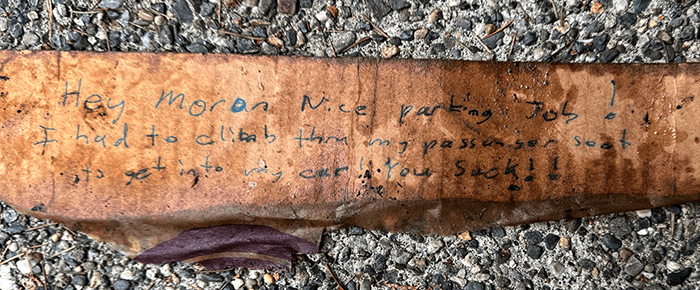 Hey Moron Nice parking Job!
I had to climb thru my passenger seat
to get into my car! You Suck!!